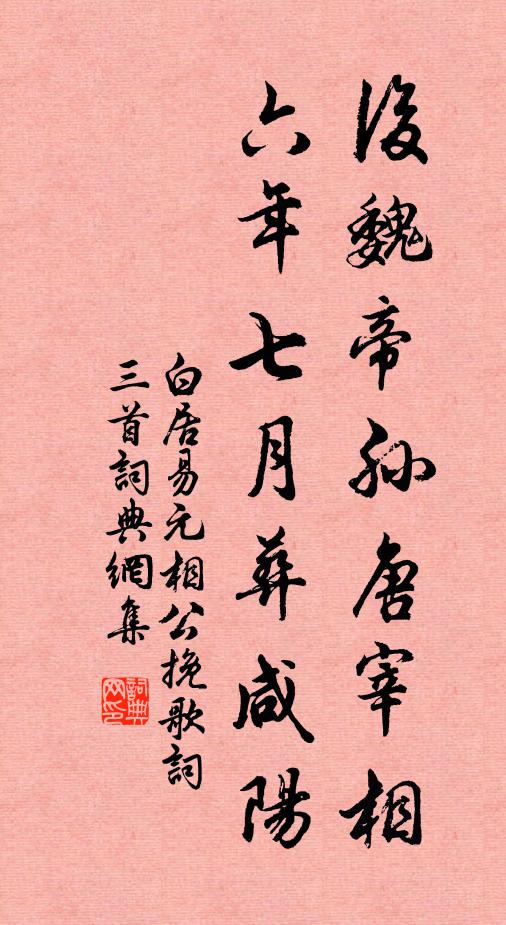 後魏帝孫唐宰相
六年七月葬咸陽
白居易元相公挽歌詞
三首詞典網集
詞典网印